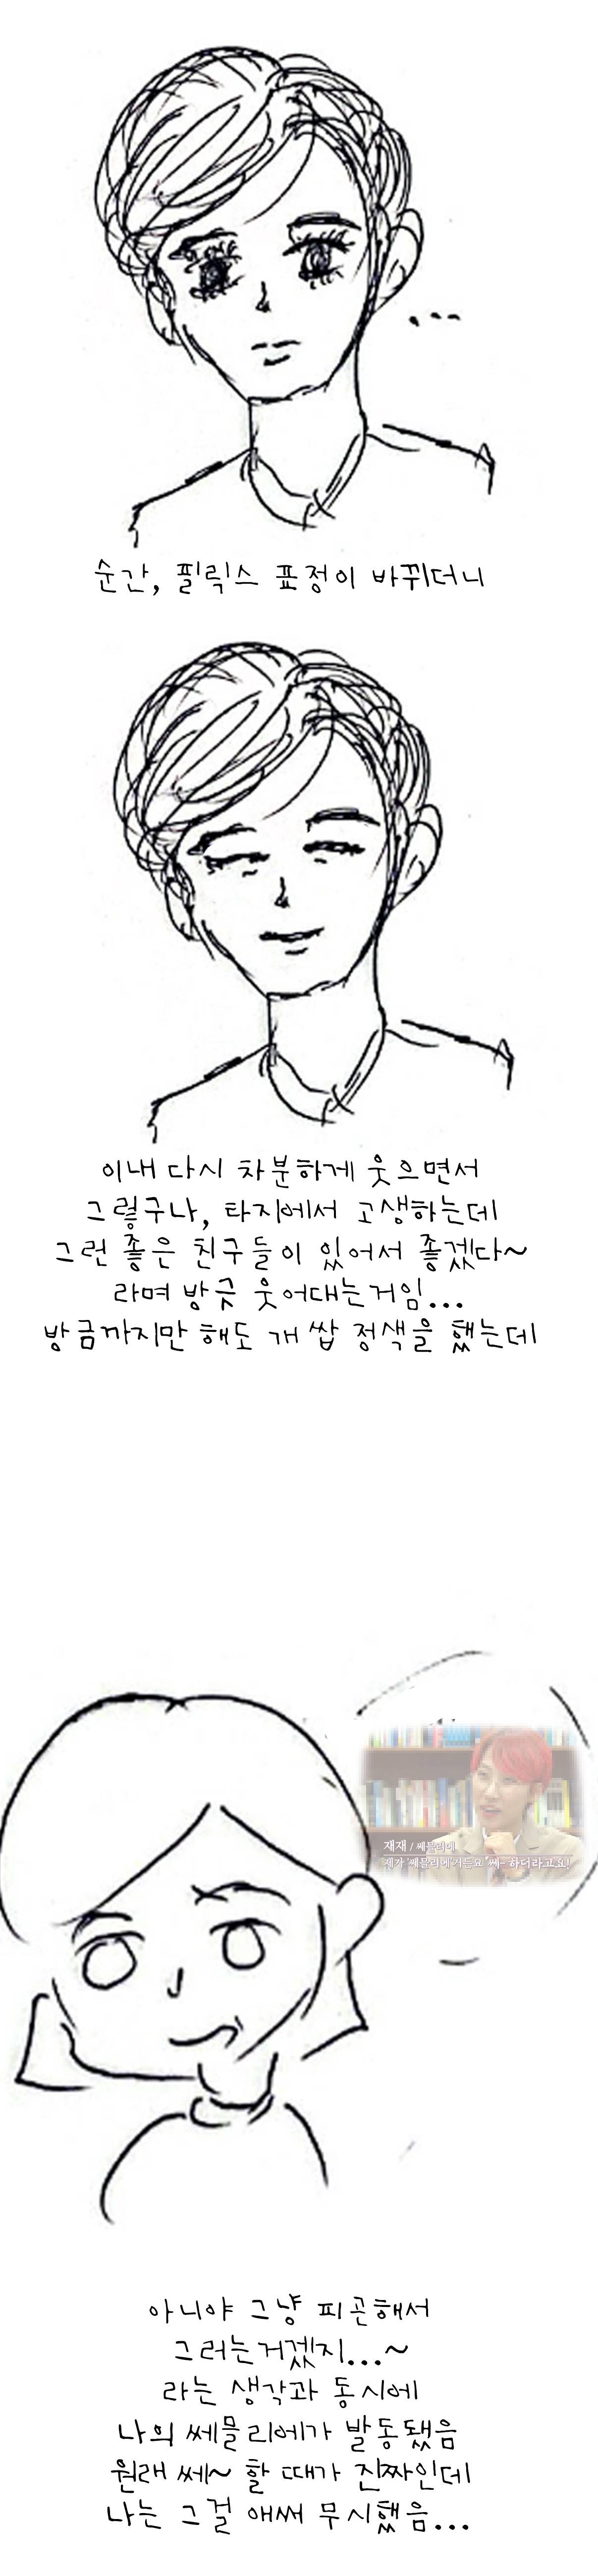 ...
순간, 필릭스 표정이 바뀌더니
이내 다시 차분하게 웃으면서
그렇구나, 타지에서 고생하는데
그런 좋은 친구들이 있어서 좋겠다~
라며 방긋 웃어대는거임...
방금까지만 해도 개쌉 정색을 했는데
재재 / 쎄믈리에
제가 '쎄믈리에'거든요 '쎄~'하더라고요!
아니야 그냥 피곤해서
그러는거겠지...~
라는 생각과 동시에
나의 쎄믈리에가 발동됐음
원래 쎄~ 할 때가 진짜인데
나는 그걸 애써 무시했음...